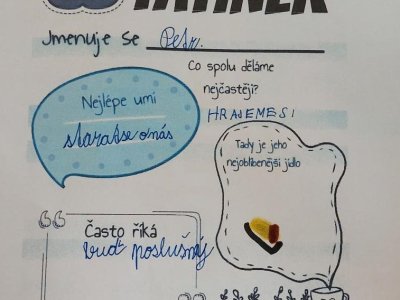 TATÍNEK
Jmenuje se Petr.
Co spolu děláme
nejčastěji?
HRAJEMESI
Nejlépe umí
staratse onás
Tady je jeho
nejoblíbenější jídlo
Často říká
buď poslušný